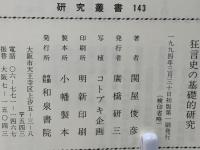 研究叢書 143
狂言史の基礎的研究
一九九四年三月三十日初版第一刷発行
(検印省略)
著者 関屋俊彦
発行者 廣橋研三
写植 コトブキ企画
印刷所 明新印刷
製本所 小幡製本
発行所 和泉書院
大阪市天王寺区上汐五-三-八
電話
振替 大阪